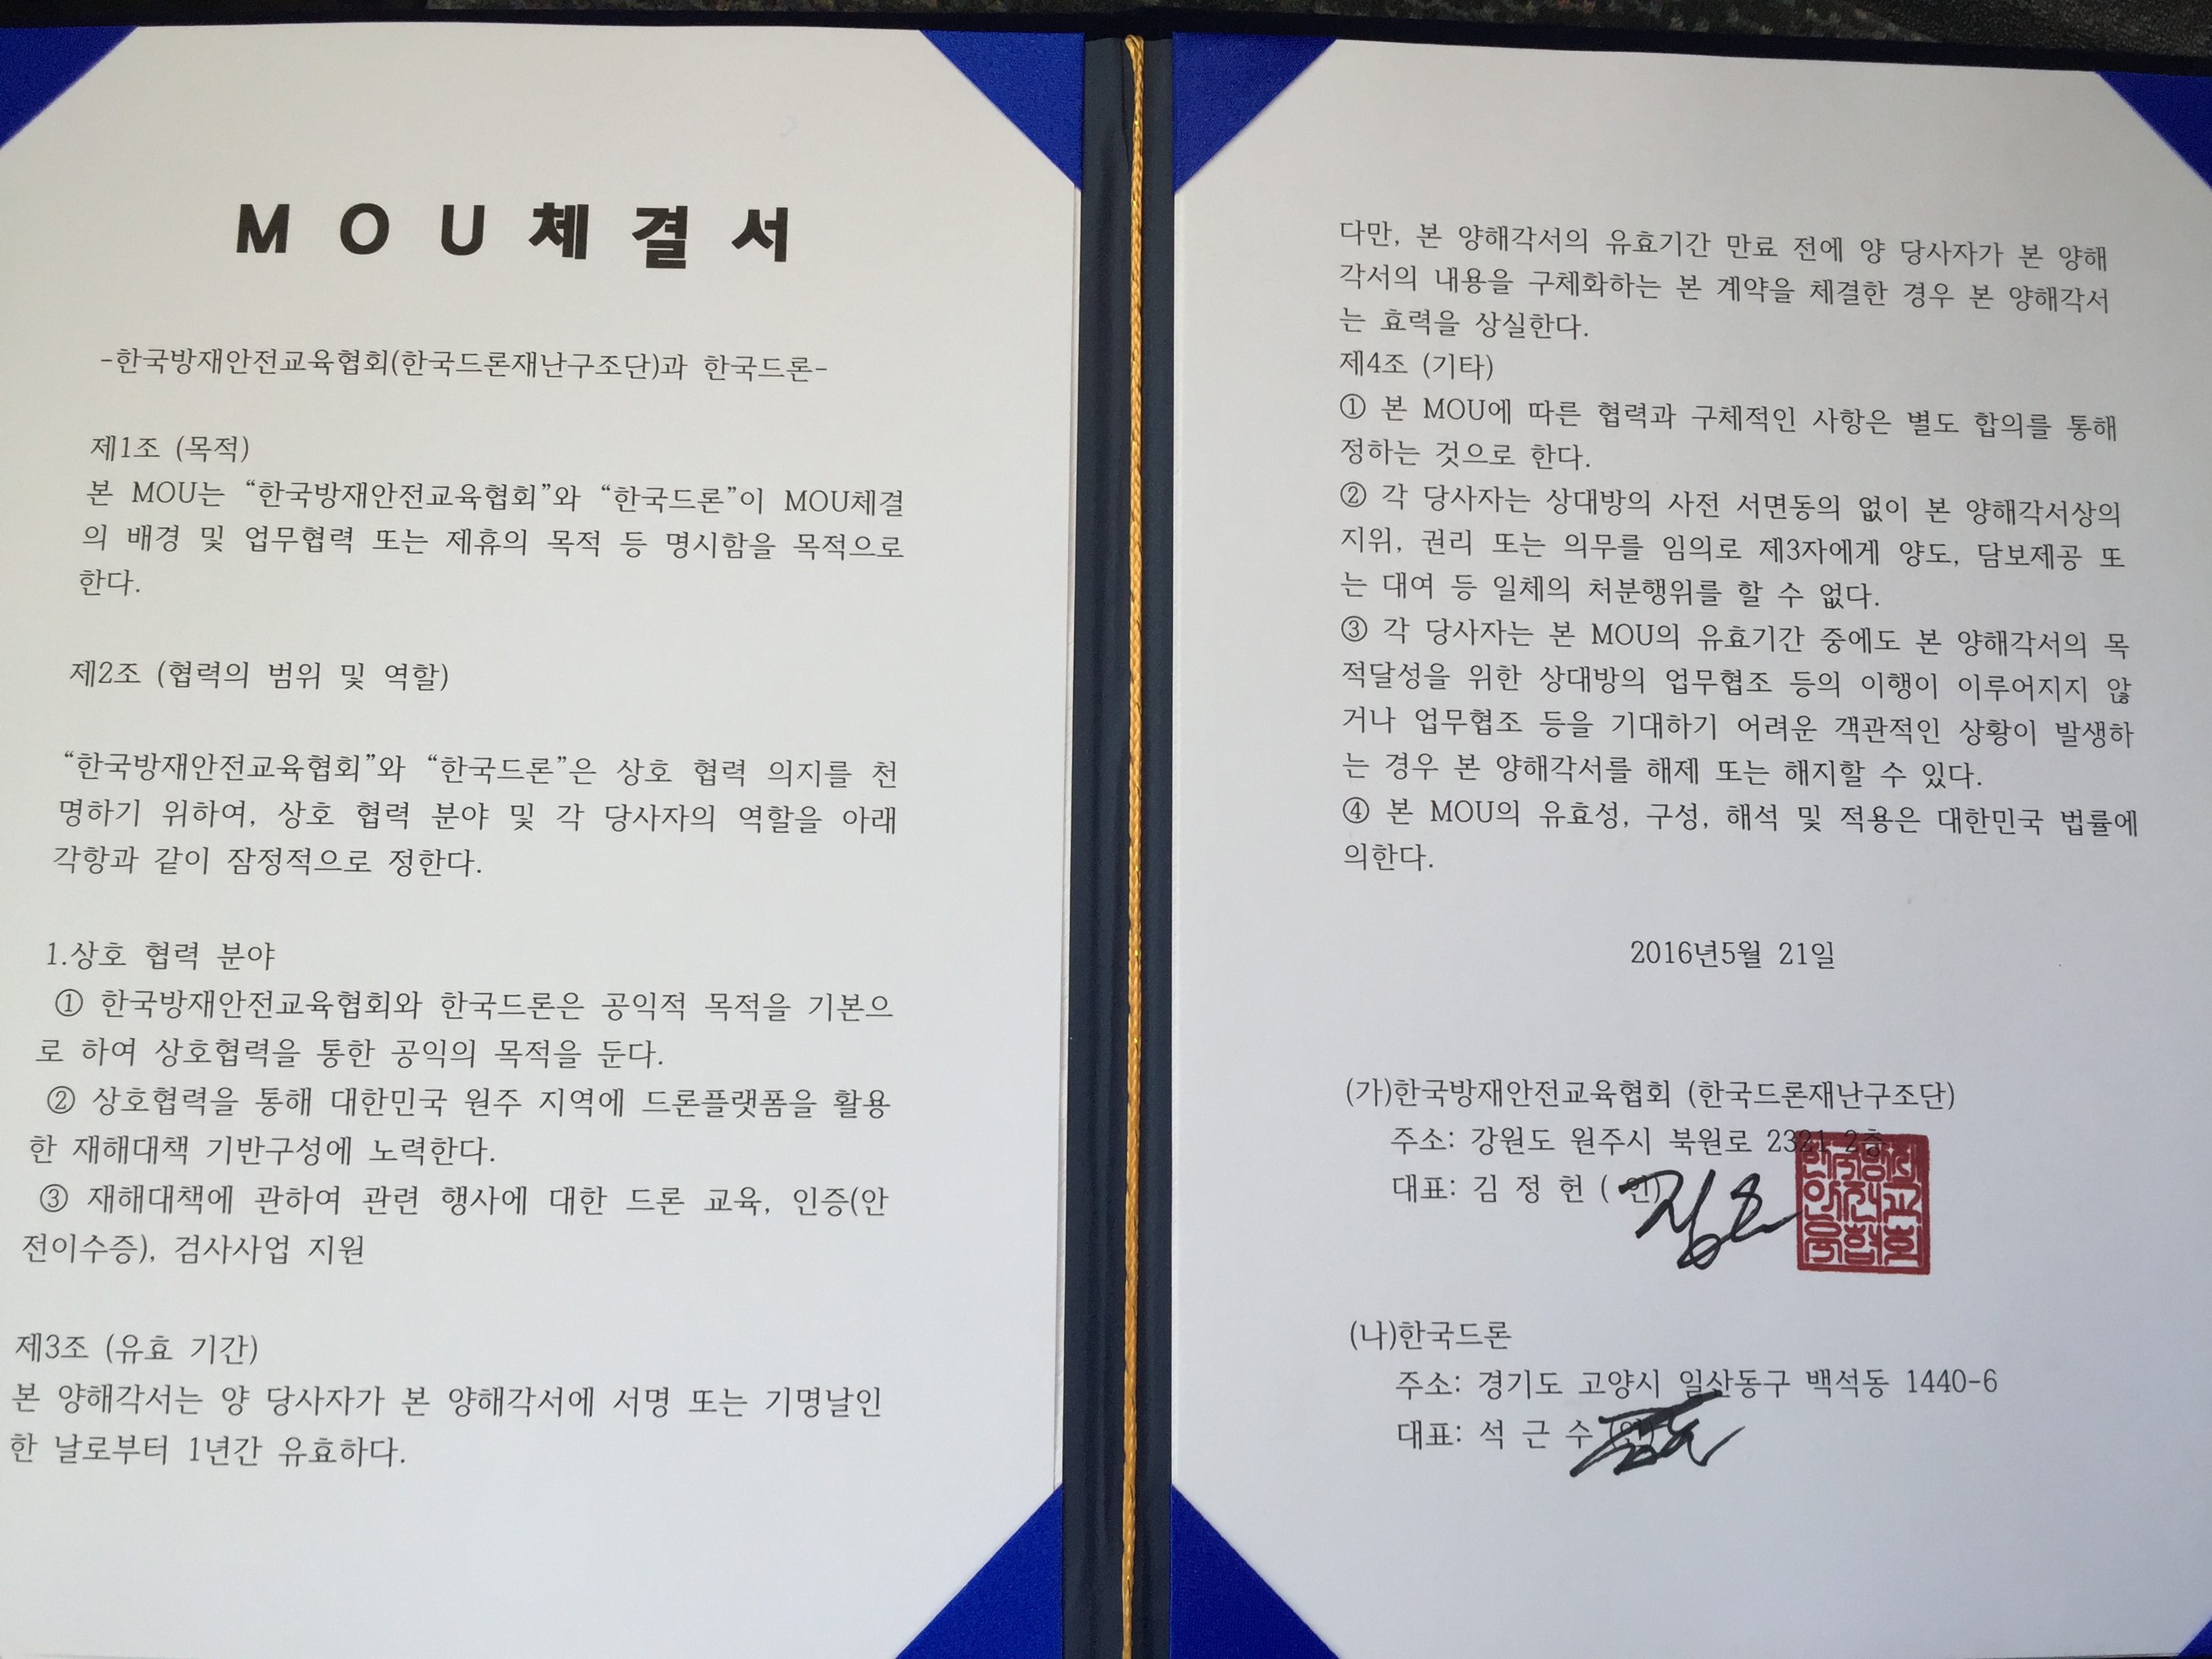 MOU체결서
-한국방재안전교육협회(한국드론재난구조단)과 한국드론-
제1조 (목적)
본 MOU는 “한국방재안전교육협회”와 “한국드론”이 MOU체결
의 배경 및 업무협력 또는 제휴의 목적 등 명시함을 목적으로
한다.
제2조 (협력의 범위 및 역할)
“한국방재안전교육협회”와 “한국드론”은 상호 협력 의지를 천
명하기 위하여, 상호 협력 분야 및 각 당사자의 역할을 아래
각항과 같이 잠정적으로 정한다.
1.상호 협력 분야
① 한국방재안전교육협회와 한국드론은 공익적 목적을 기본으
로 하여 상호협력을 통한 공익의 목적을 둔다.
② 상호협력을 통해 대한민국 원주 지역에 드론플랫폼을 활용
한 재해대책 기반구성에 노력한다.
③ 재해대책에 관하여 관련 행사에 대한 드론 교육, 인증(안
전이수증), 검사사업 지원
제3조 (유효 기간)
본 양해각서는 양 당사자가 본 양해각서에 서명 또는 기명날인
한 날로부터 1년간 유효하다.
다만, 본 양해각서의 유효기간 만료 전에 양 당사자가 본 양해
각서의 내용을 구체화하는 본 계약을 체결한 경우 본 양해각서
는 효력을 상실한다.
제4조 (기타)
① 본 MOU에 따른 협력과 구체적인 사항은 별도 합의를 통해
정하는 것으로 한다.
② 각 당사자는 상대방의 사전 서면동의 없이 본 양해각서상의
지위, 권리 또는 의무를 임의로 제3자에게 양도, 담보제공 또
는 대여 등 일체의 처분행위를 할 수 없다.
③ 각 당사자는 본 MOU의 유효기간 중에도 본 양해각서의 목
적달성을 위한 상대방의 업무협조 등의 이행이 이루어지지 않
거나 업무협조 등을 기대하기 어려운 객관적인 상황이 발생하
는 경우 본 양해각서를 해제 또는 해지할 수 있다.
④ 본 MOU의 유효성, 구성, 해석 및 적용은 대한민국 법률에
의한다.
2016년5월 21일
(가)한국방재안전교육협회 (한국드론재난구조단)
주소: 강원도 원주시 북원로 2321 2층
대표: 김 정 헌 ( 인)
한국방재
안전교
육협회
(나)한국드론
주소: 경기도 고양시 일산동구 백석동 1440-6
대표: 석 근 수 (인)